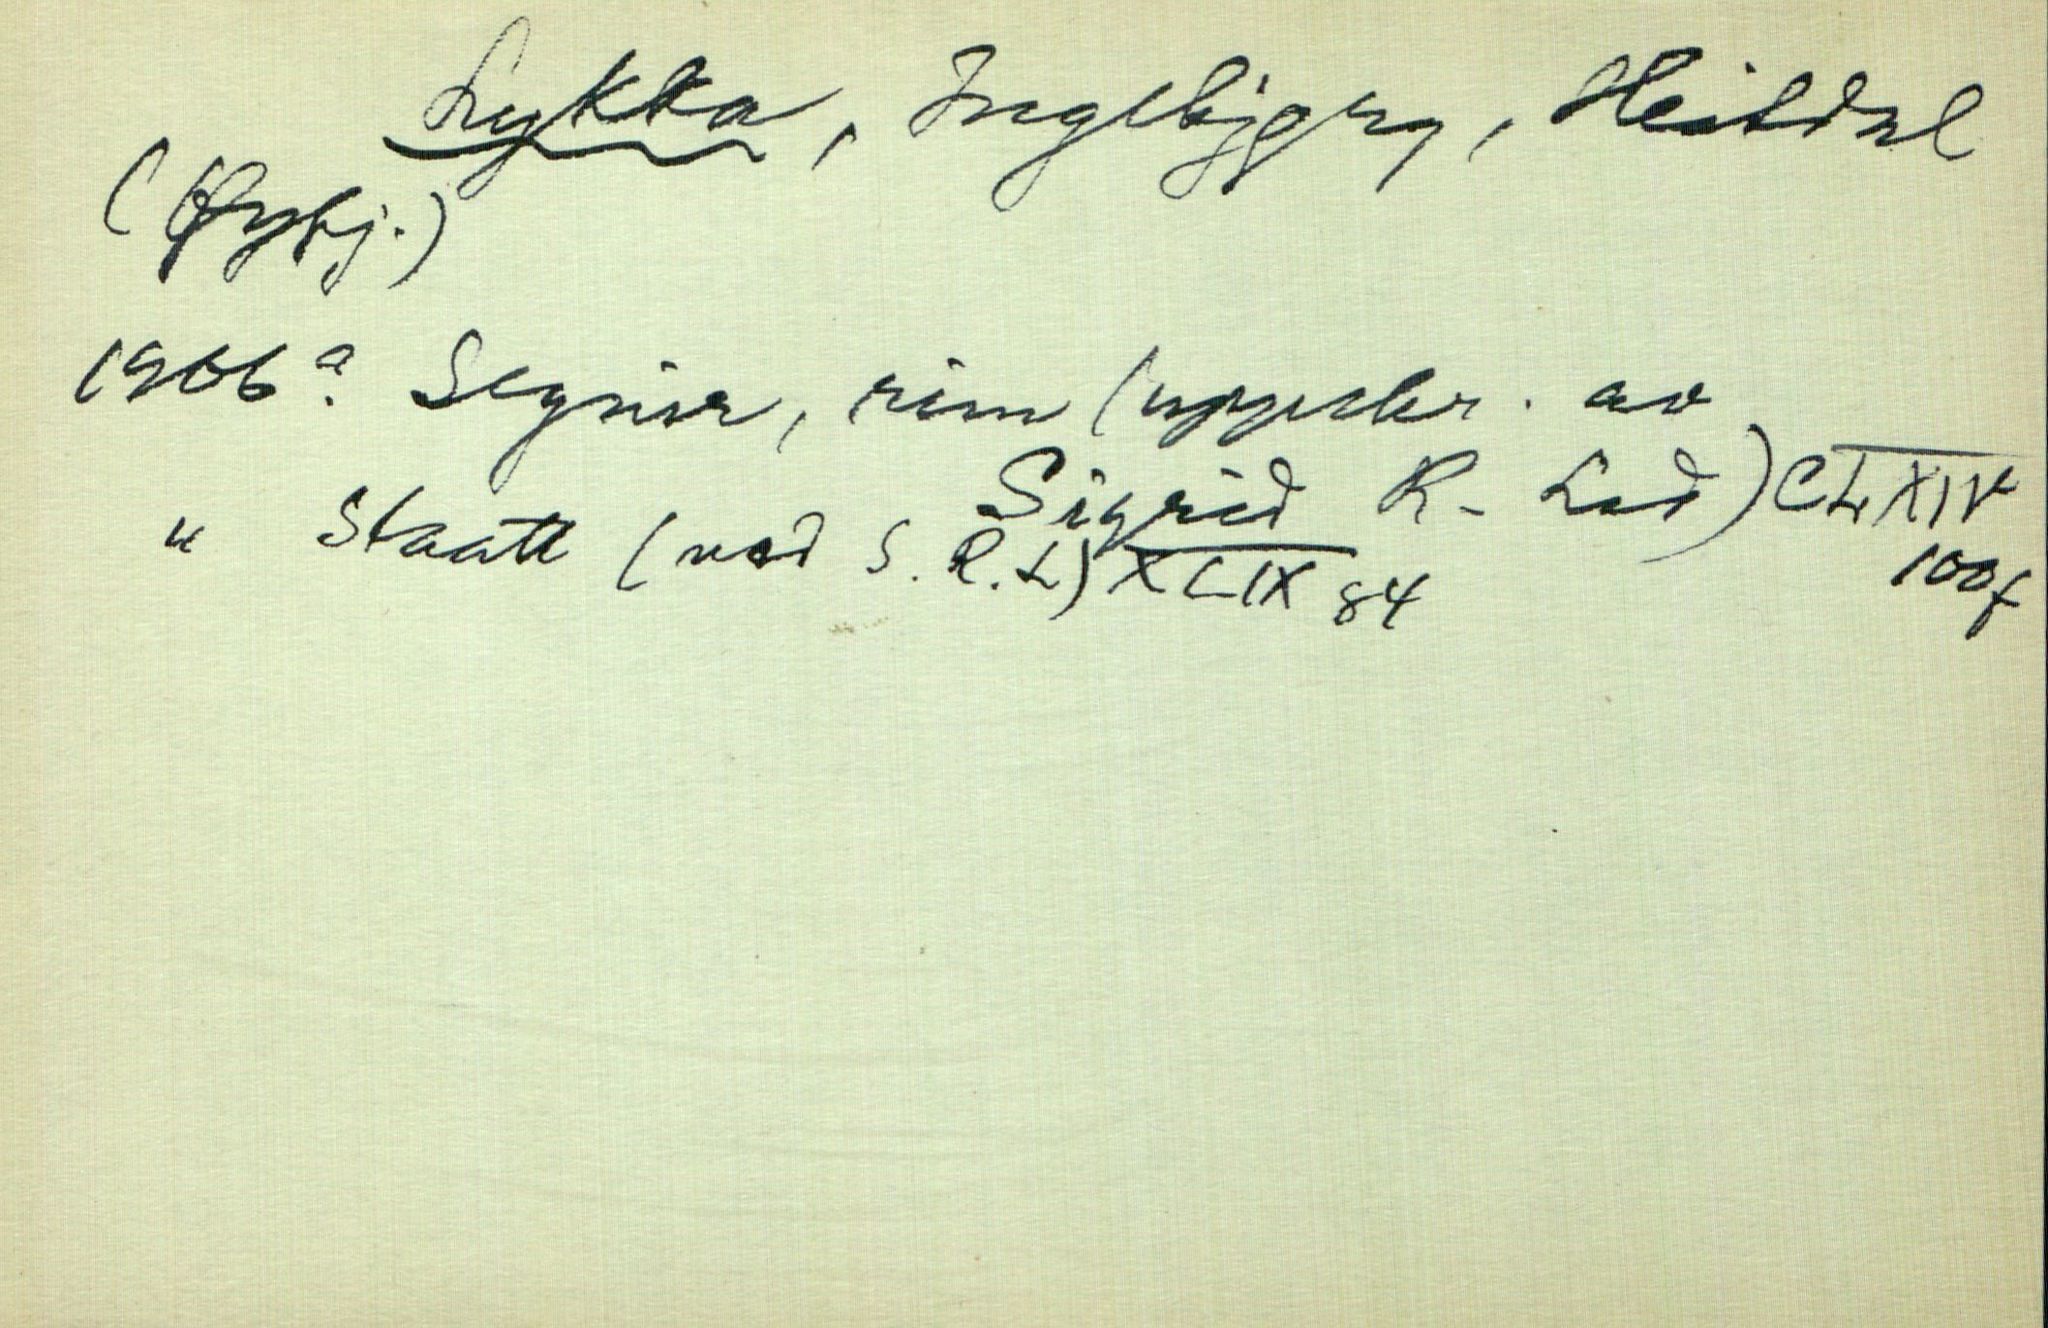 Lykka, Ingebjørg, Heitdal
(Øystj.)
1906ª. Segner, rim (uppskr. av
Sigrid R. Lid) CLXIV
100f
" Slaatt (ved S. R. L) XLIX 84